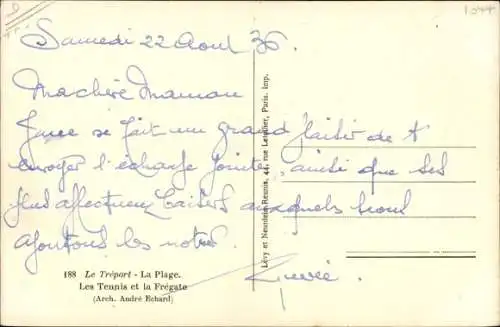 Samedi 22 Aout 36.
Ma chère Maman
se fait un grand plaisir de t'
envoyer l'écharpe jointe, ainsi que ses
plus affectueux baisers auxquels nous
ajoutons les notres.
188 Le Tréport - La Plage.
Les Tennis et la Frégate
(Arch. André Echard)
Lévy et Neurdein Réunis, 44, rue Letellier, Paris. Imp.